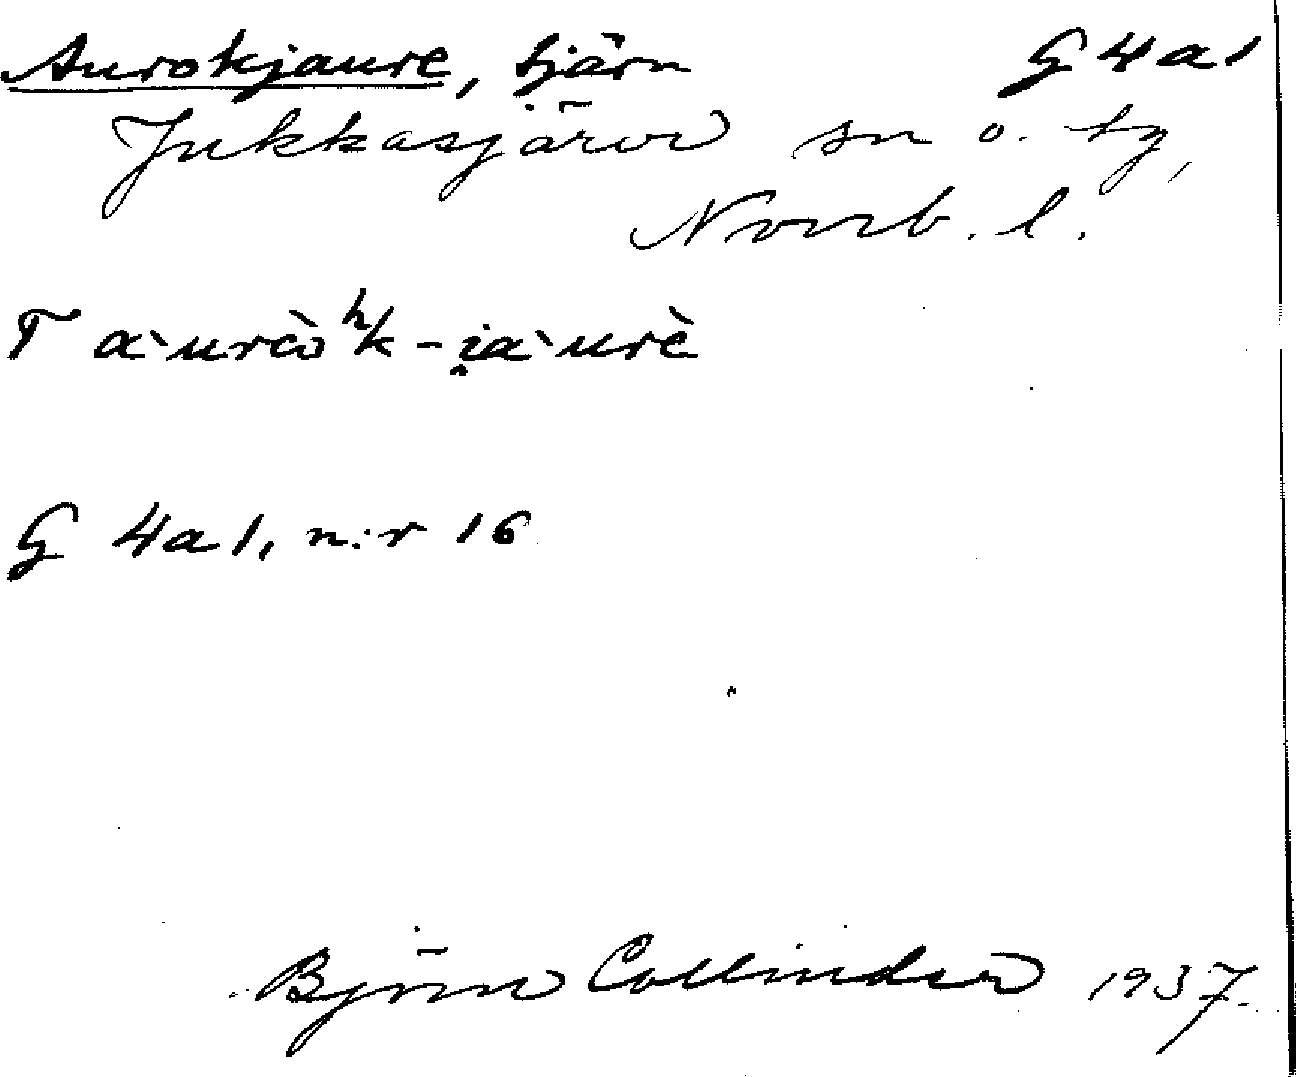 Aurokjaure, tjärn G 4 a 1
Jukkasjärvi sn o. tg,
Norrb. l.
T a`urȯ̀ʰk-i̯a`urè
G 4 a 1, n:r 16
Björn Collinder 1937